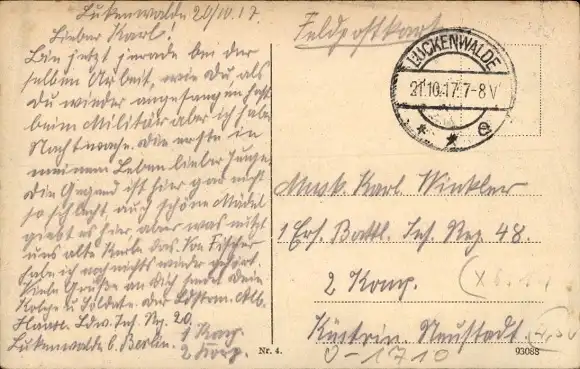 Luckenwalde 20/10.17.
Lieber Karl!
Bin jetzt gerade bei der
selben Arbeit, wie Du als
Du wieder angefangen hast
beim Militär aber ich habe
Nachtwache. Die erste in
meinem Leben lieber Junge.
Die Gegend ist hier gar nicht
so schlecht, auch schöne Mädel
giebt es hier aber was nützt
uns alte Kerle das. Von Fischer
habe ich noch nichts wieder gehört.
Viele Grüße an Dich sendet Dein
Kollege u. Soldate. Der Ldstrm. Alb.
Ldw. Inf. Reg. 20,
1 Komp.
Luckenwalde b. Berlin.
2 Korp.
Feldpostkarte
LUCKENWALDE
21.10.17.7-8V
Musk. Karl Winkler
1 Ers. Battl. Inf. Reg. 48.
2 Komp.
Küstrin. Neustadt
0-1710
Nr. 4.
93088